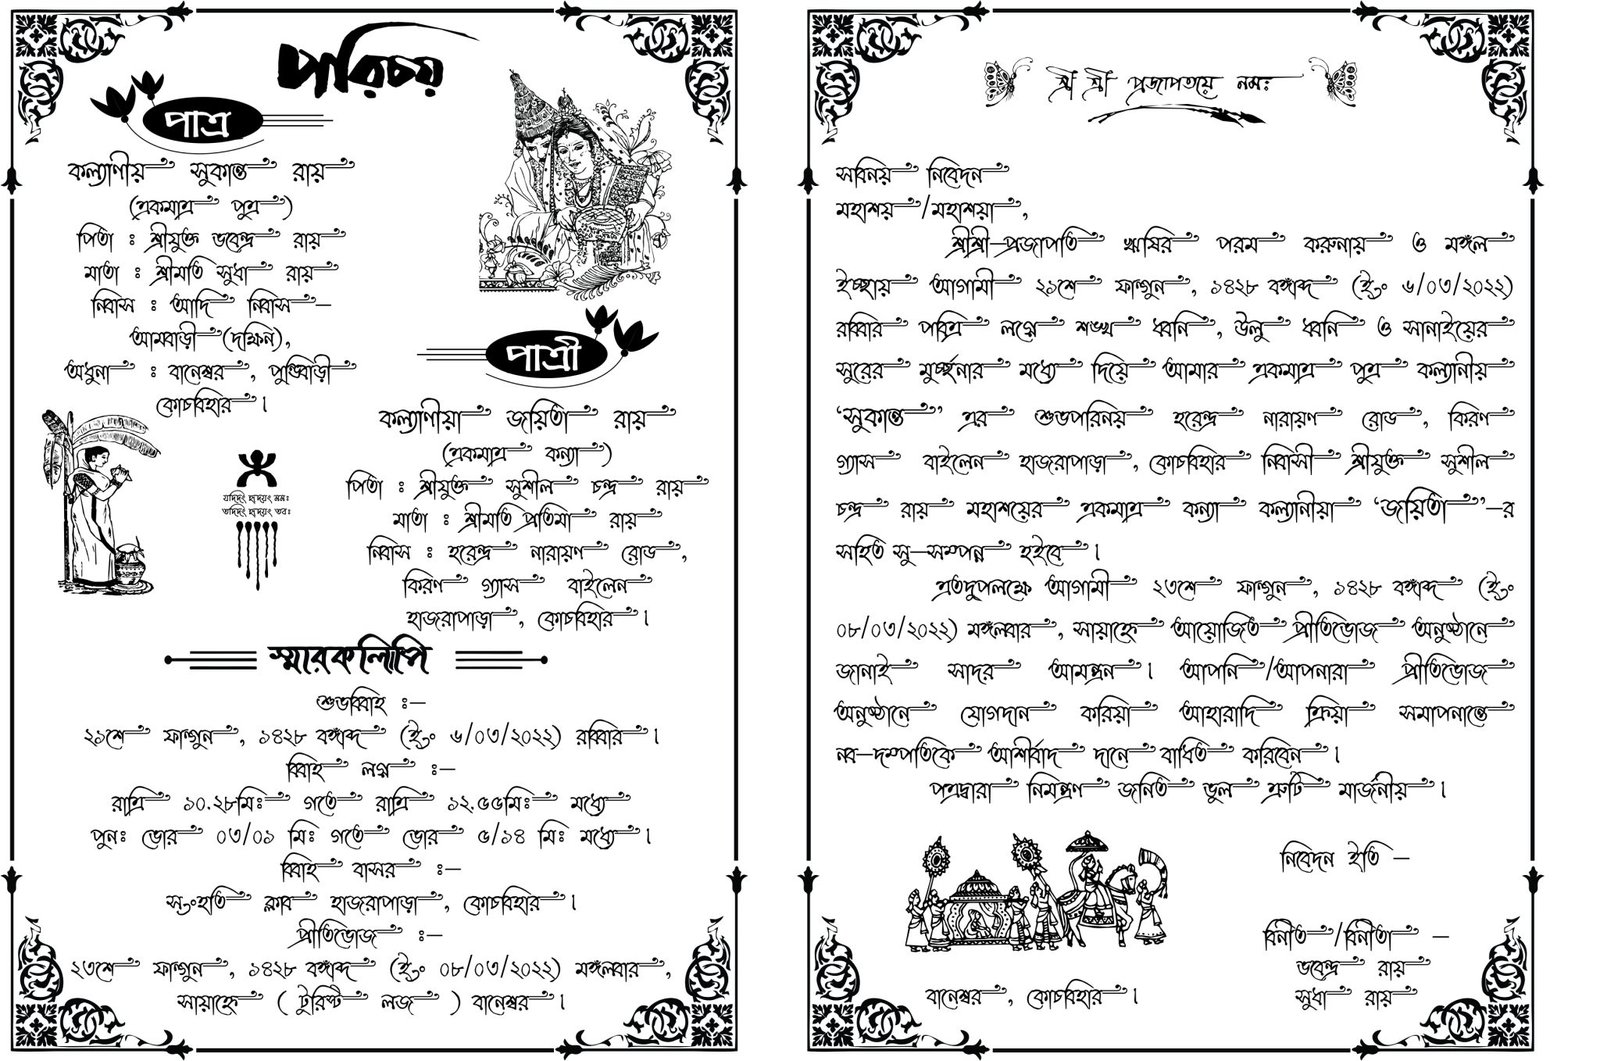 পরিচয়
পাত্র
কল্যাণীয় সুকান্ত রায়
(একমাত্র পুত্র)
পিতা ঃ শ্রীযুক্ত ভবেন্দ্র রায়
মাতা ঃ শ্রীমতি সুধা রায়
নিবাস ঃ আদি নিবাস-
আমবাড়ী (দক্ষিন),
অধুনা ঃ বানেশ্বর, পুন্ডিবাড়ী
কোচবিহার।
পাত্রী
কল্যাণীয়া জয়িতা রায়
(একমাত্র কন্যা)
পিতা ঃ শ্রীযুক্ত সুশীল চন্দ্র রায়
মাতা ঃ শ্রীমতি প্রতিমা রায়
নিবাস ঃ হরেন্দ্র নারায়ণ রোড,
কিরণ গ্যাস বাইলেন
হাজরাপাড়া, কোচবিহার।
যদিদং হৃদয়ং মমঃ
তদিদং হৃদয়ং তবঃ
স্মারকলিপি
শুভবিবাহ ঃ-
২১শে ফাল্গুন, ১৪২৮ বঙ্গাব্দ (ইং ৬/০৩/২০২২) রবিবার।
বিবাহ লগ্ন ঃ-
রাত্রি ১০.২৮মিঃ গতে রাত্রি ১২.৫৫মিঃ মধ্যে
পুনঃ ভোর ০৩/০১ মিঃ গতে ভোর ৫/১৪ মিঃ মধ্যে।
বিবাহ বাসর ঃ-
সংহতি ক্লাব হাজরাপাড়া, কোচবিহার।
প্রীতিভোজ ঃ-
২৩শে ফাল্গুন, ১৪২৮ বঙ্গাব্দ (ইং ০৮/০৩/২০২২) মঙ্গলবার,
সায়াহ্নে ( টুরিস্ট লজ ) বানেশ্বর।
শ্রী শ্রী প্রজাপতয়ে নমঃ
সবিনয় নিবেদন
মহাশয়/মহাশয়া,
শ্রীশ্রী-প্রজাপতি ঋষির পরম করুনায় ও মঙ্গল
ইচ্ছায় আগামী ২১শে ফাল্গুন, ১৪২৮ বঙ্গাব্দ (ইং ৬/০৩/২০২২)
রবিবার পবিত্র লগ্নে শঙ্খ ধ্বনি, উলু ধ্বনি ও সানাইয়ের
সুরের মুর্চ্ছনার মধ্যে দিয়ে আমার একমাত্র পুত্র কল্যানীয়
‘সুকান্ত’ এর শুভপরিনয় হরেন্দ্র নারায়ণ রোড, কিরণ
গ্যাস বাইলেন হাজরাপাড়া, কোচবিহার নিবাসী শ্রীযুক্ত সুশীল
চন্দ্র রায় মহাশয়ের একমাত্র কন্যা কল্যানীয়া ‘জয়িতা’-র
সহিত সু-সম্পন্ন হইবে।
এতদুপলক্ষে আগামী ২৩শে ফাল্গুন, ১৪২৮ বঙ্গাব্দ (ইং
০৮/০৩/২০২২) মঙ্গলবার, সায়াহ্নে আয়োজিত প্রীতিভোজ অনুষ্ঠানে
জানাই সাদর আমন্ত্রন। আপনি/আপনারা প্রীতিভোজ
অনুষ্ঠানে যোগদান করিয়া আহারাদি ক্রিয়া সমাপনান্তে
নব-দম্পতিকে আশীর্বাদ দানে বাধিত করিবেন।
পত্রদ্বারা নিমন্ত্রণ জনিত ভুল ত্রুটি মার্জনীয়।
নিবেদন ইতি -
বিনীত/বিনীতা -
ভবেন্দ্র রায়
বানেশ্বর, কোচবিহার।
সুধা রায়